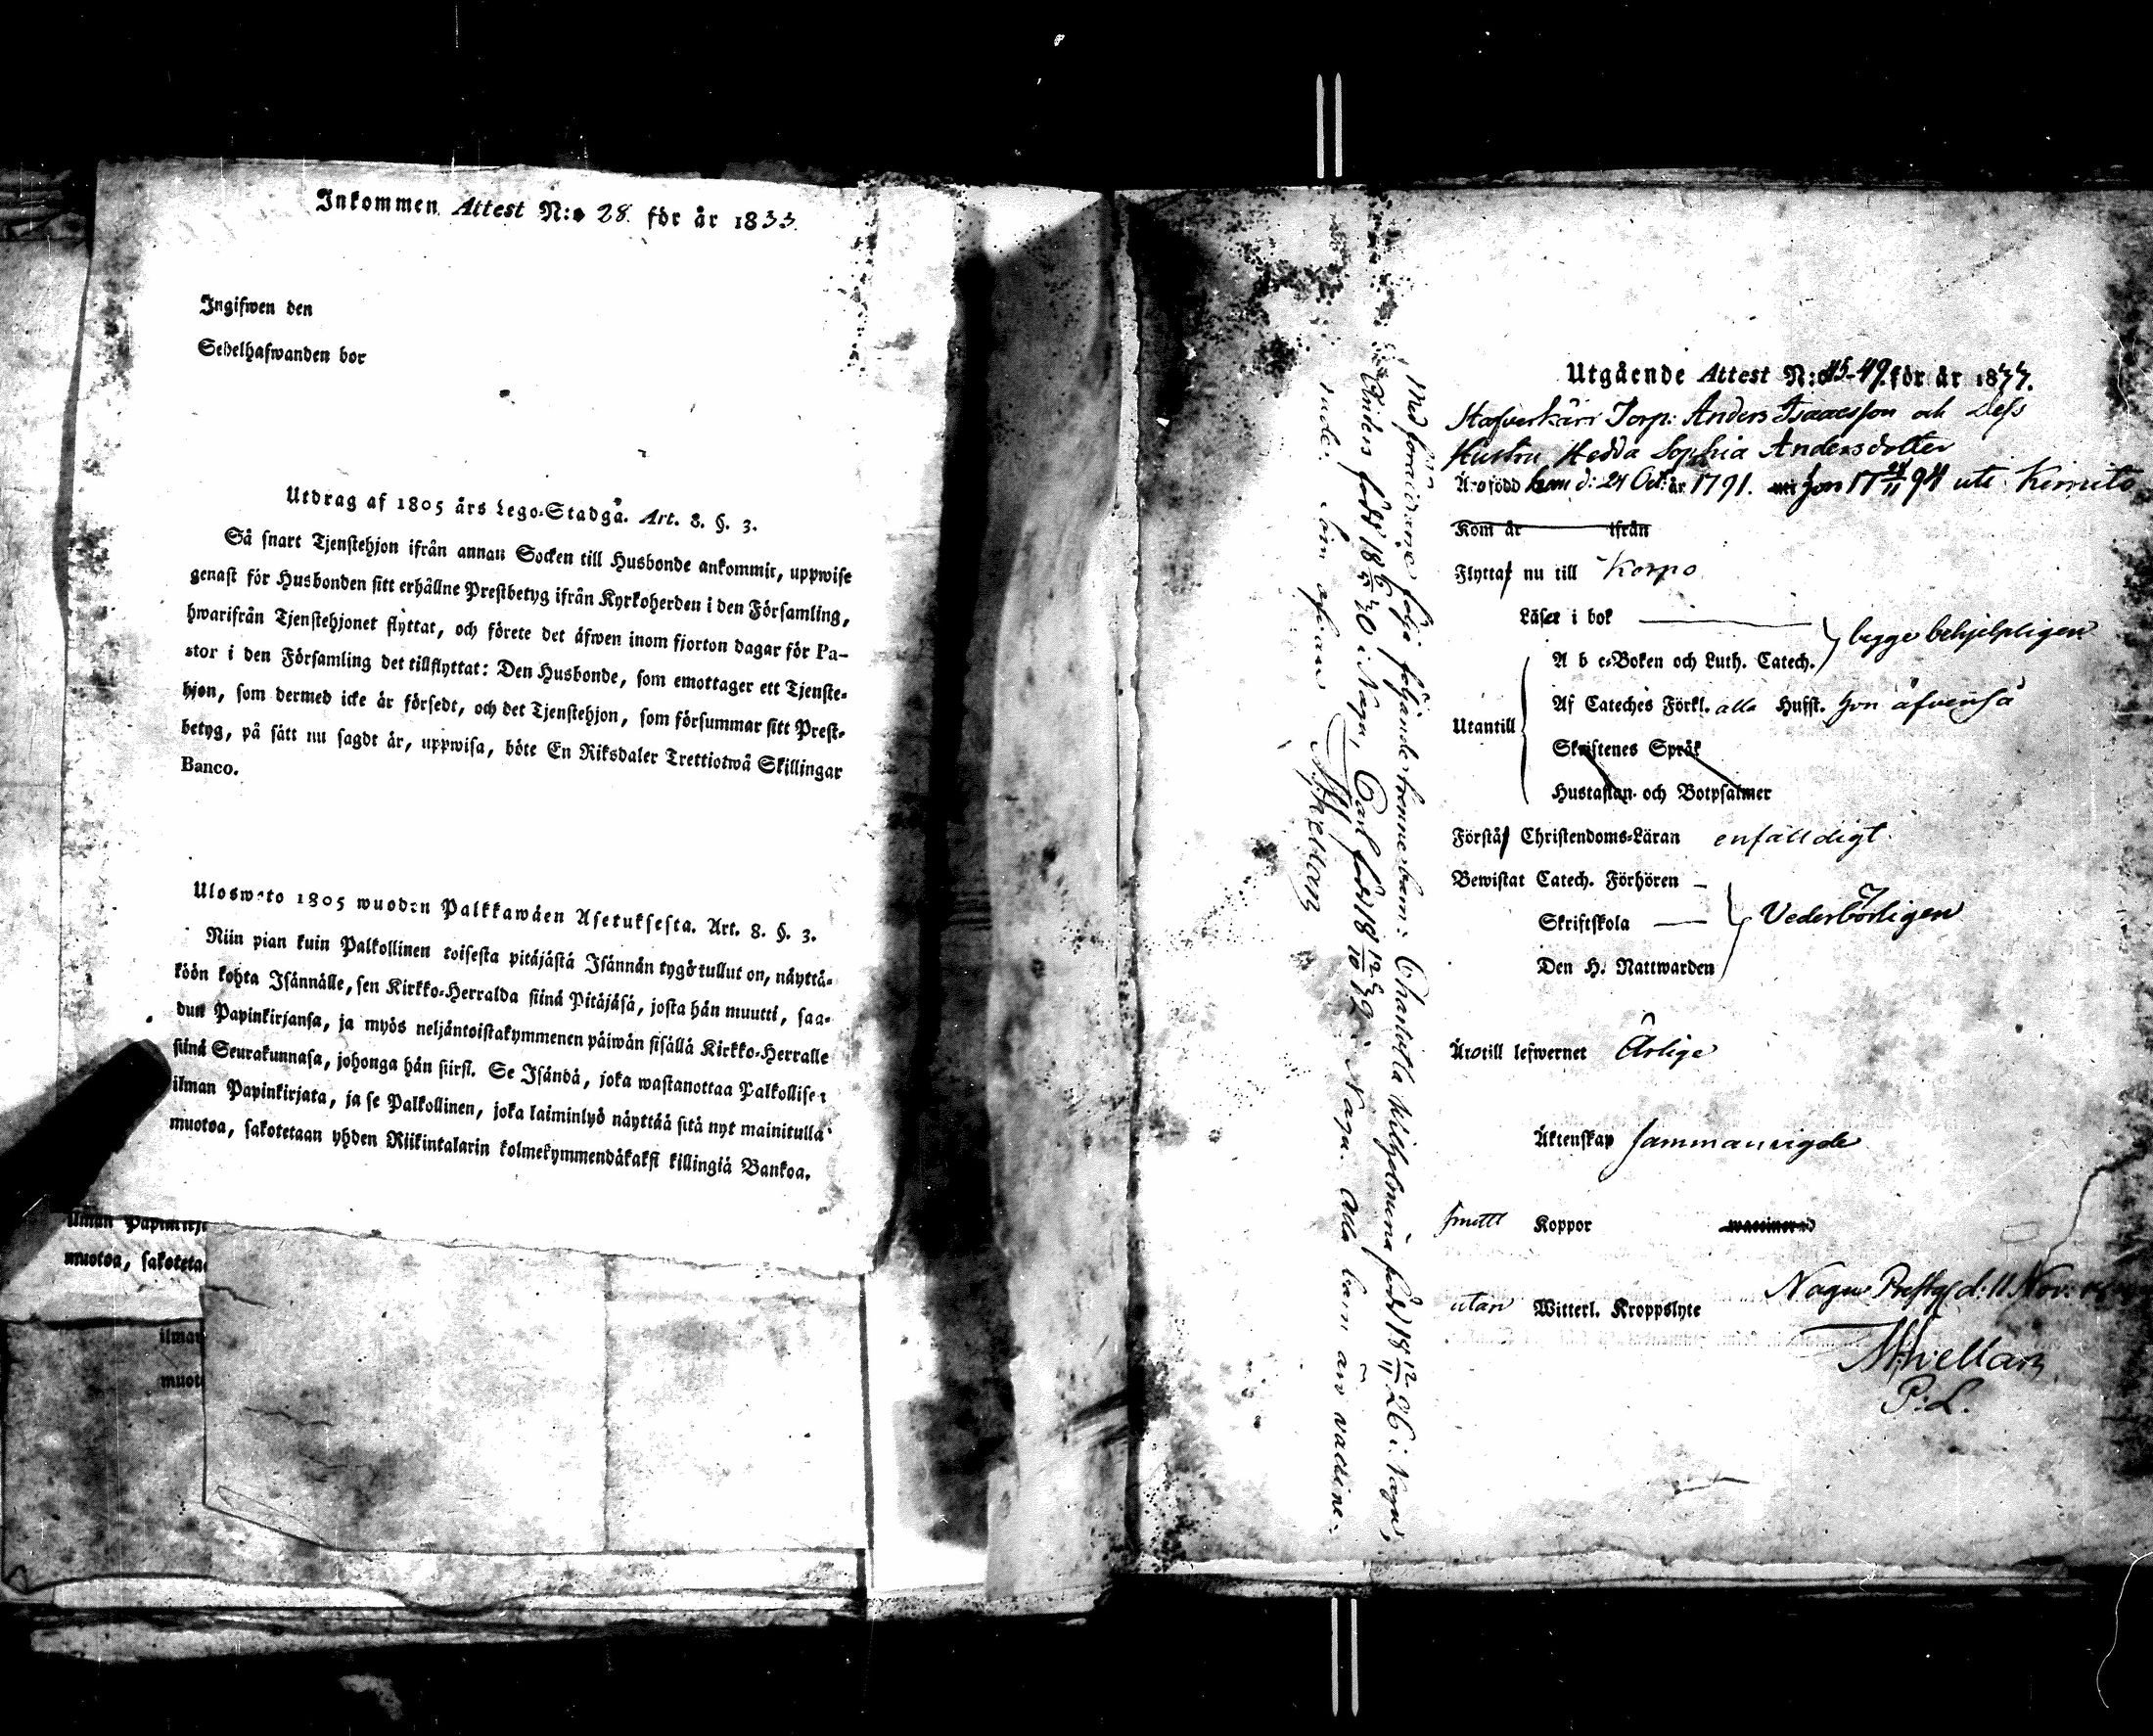 Inkommen Attest N:o 28. för år 1833.
Ingifwen den
Sedelhafwanden bor
Utdrag af 1805 års Lego-Stadga. Art. 8. §. 3.
Så snart Tjenstehjon ifrån annan Socken till Husbonde ankommit, uppwise
genast för Husbonden sitt erhållne Prestbetyg ifrån Kyrkoherden i den Församling,
hwarifrån Tjenstehjonet flyttat, och förete det äfwen inom fjorton dagar för Pa-
stor i den Församling det tillflyttat: Den Husbonde, som emottager ett Tjenste-
hjon, som dermed icke är försedt, och det Tjenstehjon, som försummar sitt Prest-
betyg, på sätt nu sagdt är, uppwisa, böte En Riksdaler Trettiotwå Skillingar
Banco.
Uloswето 1805 wuoden Palkkawäen Asetuksesta. Art. 8. §. 3.
Niin pian kuin Palkollinen toisesta pitäjästä Isännän tygö tullut on, näyttä-
köön kohta Isännälle, sen Kirkko-Herralda siinä Pitäjäsä, josta hän muutti, saa-
dun Papinkirjansa, ja myös neljäntoistakymmenen päiwän sisällä Kirkko-Herralle
siinä Seurakunnasa, johonga hän siirsi. Se Isändä, joka wastanottaa Palkollisen
ilman Papinkirjata, ja se Palkollinen, joka laiminlyö näyttää sitä nyt mainitulla
muotoa, sakotetaan yhden Riikintalarin kolmekymmendäkaksi killingiä Bankoa.
ilman Papinkirj
muotoa, sakoteta
ilman
muoto
Utgående Attest N:o 45-49. för år 1833.
Torp. Anders Isaacsson och dess
Hustru Hedda Sophia Andersdotter
Äro född han d: 24 Oct: år 1791. hon 17 11 94 uti Kimito
Kom år ifrån
Flytta nu till Korpo
Läser i bok
A b c-Boken och Luth. Catech. begge behjelpligen
Utantill
Af Cateches Förkl. alla Husst. hon äfvenså
Skriftenes Språk
Hustaflan och Botpsalmer
Förstå Christendoms-Läran enfalldigt
Bewistat Catech. Förhören
Skriftskola Vederbörligen
Den H. Nattwarden
Äro till lefwernet Ärlige
Äktenskap sammanvigde
Koppor waccinerad
utan Witterl. Kroppslyte
Nagu Prestg d: 11 Nov:
P: L.
Med föräldrarne följa följande hemmabarn: Charlotta Wilhelmina född 18 12/11 26 i Nagu,
Anders född 18 20 i Nagu, Carl född 18 12/10 i Nagu. Alla barn äro vaccine-